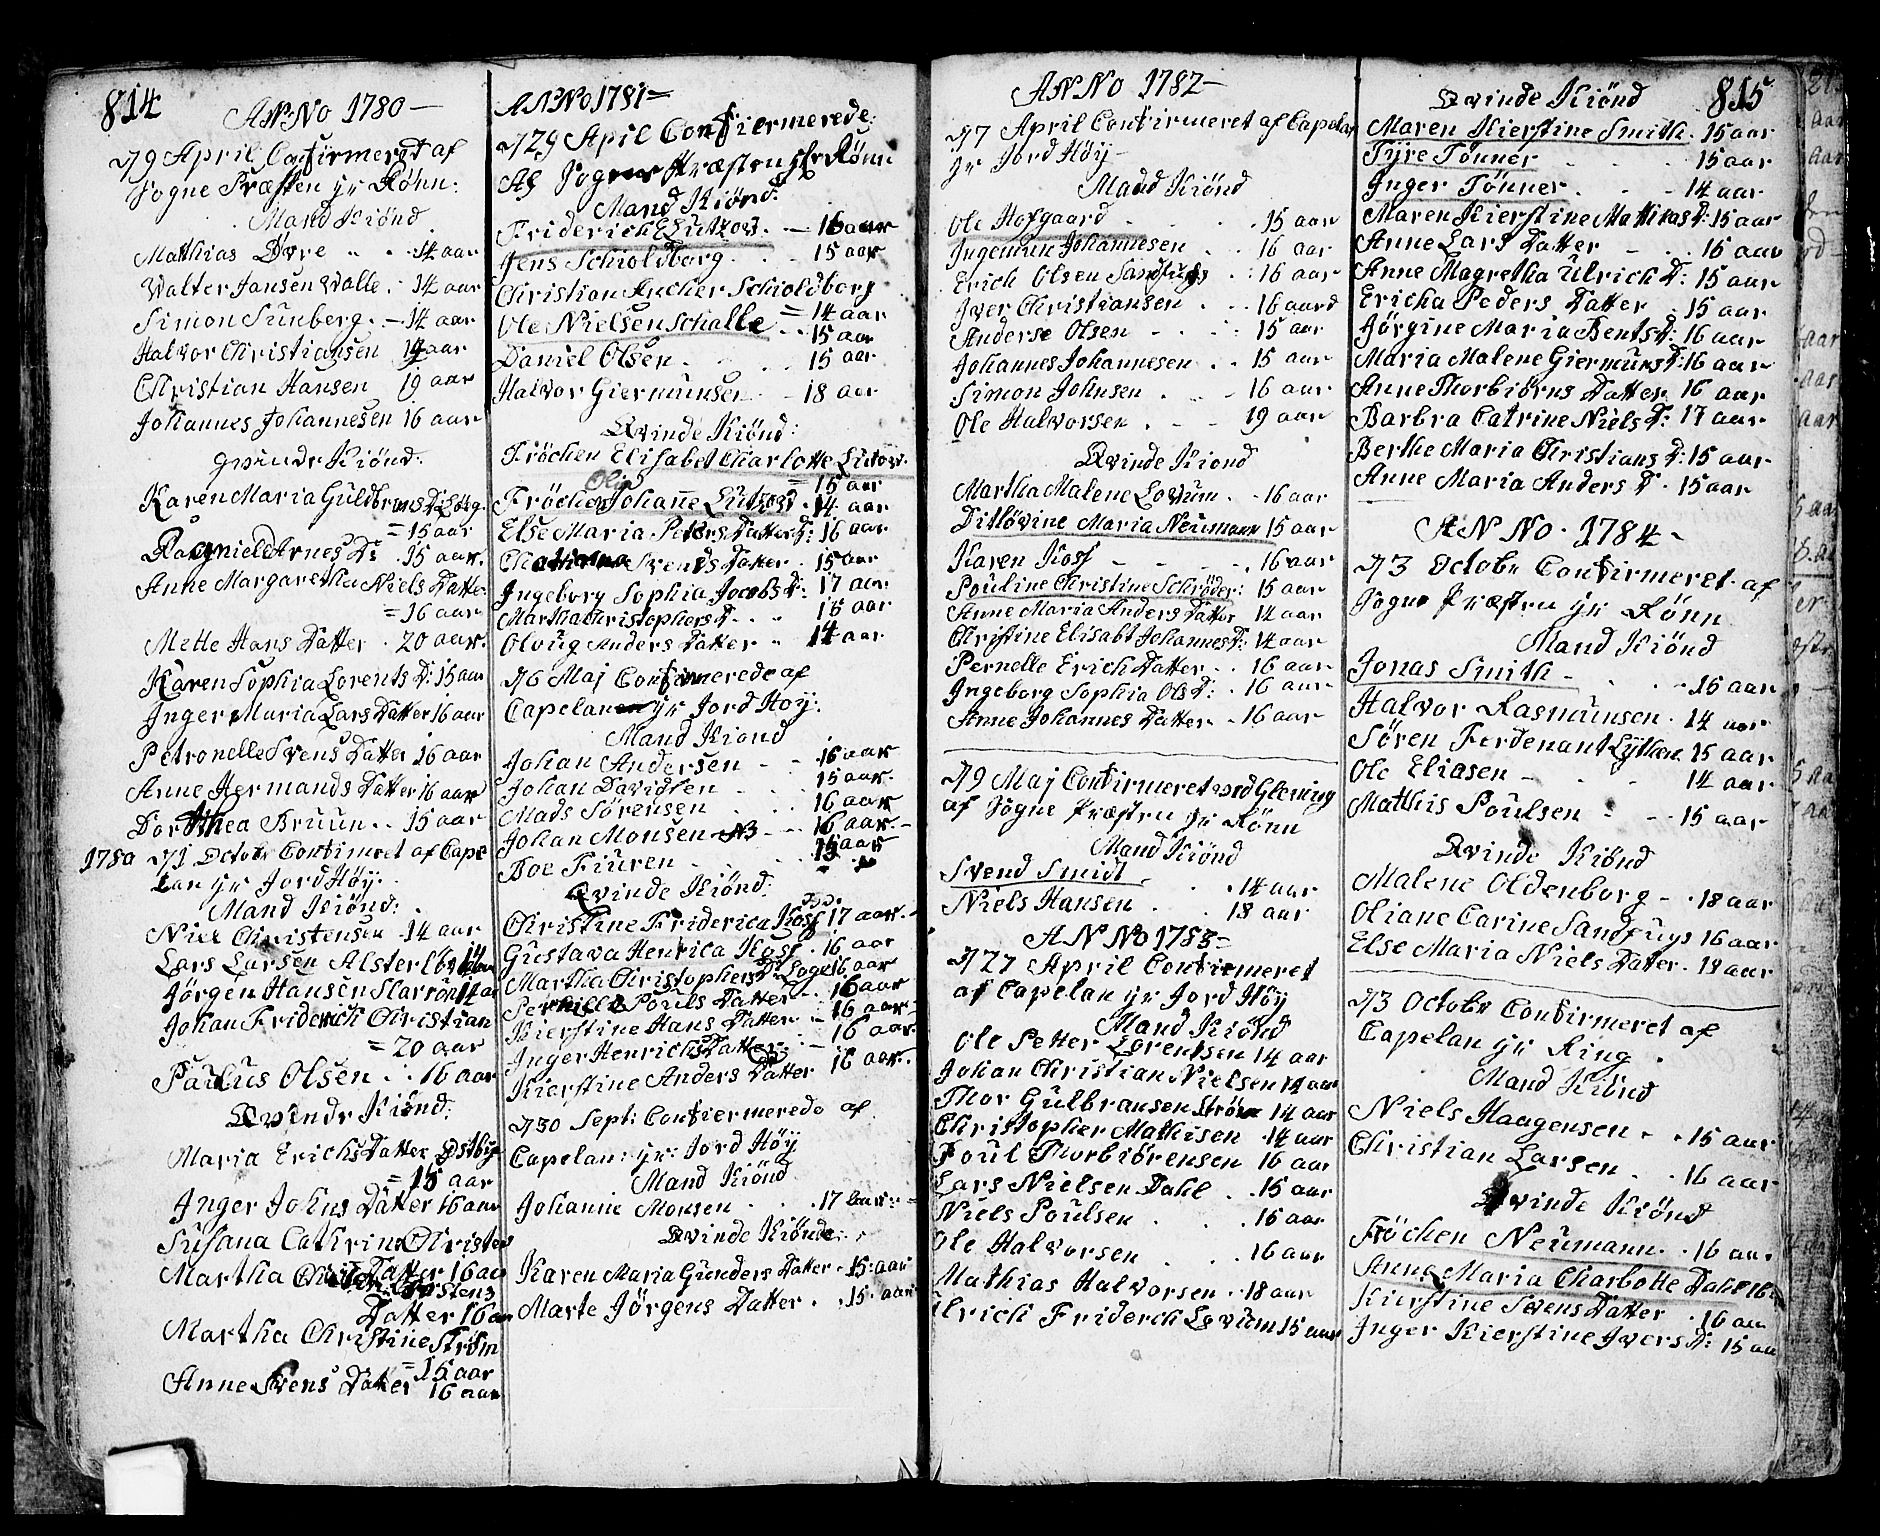 814
ANNO 1780 —
D 9 April Confirmeret af
Sogne Præsten Hr Rønn:
Mand Kiönd
Matthias Øvre .. . 14 aar
Walter Jansen Walle . 14 aar
Simon Sunberg . — 14 aar
Halvor Christiansen 14 aar
Christian Hansen 19 aar
Johannes Johannesen 16 aar
Qvinde Kiönd:
Karen Maria Guldbrans D:
= 15 aar
Ragnield Arnes D: . 15 aar
Anne Margaretha Niels Datter
= 16 aar
Mette Hans Datter . 20 aar.
Karen Sophia Lorents D: 15 aar
Inger Maria Lars Datter 16 aar
Petronelle Svens Datter 16 aar
Anne Hermands Datter 16 aar
Dorthea Bruun . . 15 aar
1780 D 1 Octobr Confirmeret af Cape
lan Hr Jord Höy.
Mand Kiönd:
Niel Christensen . 14 aar
Lars Larsen 14
Jörgen Hansen 14 aar
Johan Friderich Christian
= 20 aar
Paulus Olsen . . 16 aar
Qvinde Kiönd:
Maria Erichs Datter Østbye
= 15 aar
Inger Johns Datter 16 aar
Susana Cathrina Christen
Datter 16 aar
Martha Christens
Datter 16 aar
Martha Christine Ström
= 15 aar
Anne Svens Datter 16 aar
ANNO 1781 =
D 29 April Confirmerede.
Af Sogne Præsten Hr Rönn
Mand Kiönd:
Friderich Lützow . — 16 aar
Jens Schioldborg . . . 15 aar
Christian Ancher Schioldborg
= 14 aar
Ole Nielsen Schalle . . 15 aar
Daniel Olsen . . . 15 aar
Halvor Giermunsen . — 18 aar
Qvinde Kiönd:
Fröchen Elisabet Charlotte Lützow.
= 15 aar
Fröchen Olia Johanne Lützow . 14 aar
Else Maria Peters Datter D: 16 aar
Svends Datter . 15 aar
Ingeborg Sophia Jacobs D: 17 aar
Martha Christophers D . . . 15 aar
Oloug Anders Datter .. 14 aar
D 6 Maj Confirmerede af
Capelan Hr Jord Höy:
Mand Kiönd
Johan Andersen — — 16 aar
Johan Davidsen . . . 15 aar
Mads Sörensen . . . 16 aar
Johan Monsen — 16 aar
Boe Fiuren . . . 15 aar
Qvinde Kiönd:
Christine Friderica Koss 17 aar
Gustava Henrica Koss . 16 aar
Martha Christophers D: Loga 16 aar
Pernille Pouls Datter . . 16 aar
Kierstine Hans Datter — 16 aar
Inger Henrichs Datter — 16 aar
Kierstine Anders Datter 16 aar
D 30 Sept: Confirmerede af
Capelan: Hr: Jord Höy
Mand Kiönd
Johanne Monsen . . . 17 aar
Qvinde Kiönd:
Karen Maria Gunders Datter . 15 aar
Marte Jörgens Datter . . 15 aar
ANNO 1782 —
D 7 April Confirmeret af Capelan
Hr Jord Höy —
Mand Kiönd
Ole Hofgaard . . . 15 aar
Ingemun Johannesen . . 16 aar
Erich Olsen Sandfugs . : 16 aar
Iver Christiansen . . 16 aar
Anderse Olsen — . . 15 aar
Johannes Johannesen . . 15 aar
Simon Johnsen . — . 16 aar
Ole Halvorsen . — . 19 aar
Qvinde Kiond
Martha Malene Lovum . . 16 aar
Ditlövine Maria Neumann 15 aar
Karen Koss — — — . 16 aar
Pouline Christine Schröder: 15 aar
Anne Maria Anders Datter 14 aar
Christine Elisabt Johannes D: 14 aar
Pernelle Erich Datter . . 16 aar
Ingeborg Sophia Ols D: . . 16 aar
Anne Johannes Datter . . 16 aar
D 9 Maj Confirmeret ved Glening
af Sogne Præsten Hr Rönn
Mand Kiönd
Svend Smidt . . . 14 aar
Niels Hansen . . . 18 aar
ANNO 1783 —
D 27 April Confirmeret
af Capelan Hr Jord Höy
Mand Kiönd
Ole Petter Lorentsen 14 aar
Johan Christian Nielsen 14 aar
Thor Gulbransen Ström 14 aar
Christopher Mathisen . 14 aar
Poul Thorbiörensen 16 aar
Lars Nielsen Dahl . . 15 aar
Niels Poulsen . . . 15 aar
Ole Halvorsen . . 16 aar
Mathias Halvorsen . . 18 aar
Ulrich Friderch Lovum 15 aar
Qvinde Kiönd 815
Maren Kierstine Smith . 15 aar
Tyre Tönner . . . 15 aar
Inger Tönner . . . 14 aar
Maren Kierstine Mathias D: 15 aar
Anne Lars Datter — . 15 aar
Anne Magretha Ulrich D: 15 aar
Ericha Peders Datter . 15 aar
Jörgine Maria Bents D: 16 aar
Maria Malene Giermuns D: 16 aar
Anne Thorbiörns Datter 16 aar
Barbra Catrine Niels D: 17 aar
Berthe Maria Christians D: 15 aar
Anne Maria Anders D . 15 aar
ANNO . 1784 —
D 3 Octobr Confirmeret af
Sogne Præsten Hr Rönn
Mand Kiönd
Jonas Smith — . . . 15 aar
Halvor Rasmunsen . 14 aar
Sören Ferdenant Lythen 15 aar
Ole Eliasen — . . 14 aar
Matthis Poulsen : — . 15 aar
Qvinde Kiönd
Malene Oldenborg — . 18 aar
Oliane Carine Sandfugs 16 aar
Else Maria Niels Datter . 18 aar
D 3 Octobr Confirmeret af
Capelan Hr Ring .
Mand Kiönd
Niels Haagensen . . 15 aar
Christian Larsen . . 16 aar
Qvinde Kiönd
Fröchen Neumann . . 16 aar
Anne Maria Charlotte Dahl 16
Kierstine Svens Datter . 16 aar
Inger Kierstine Ivers D: 15 aar